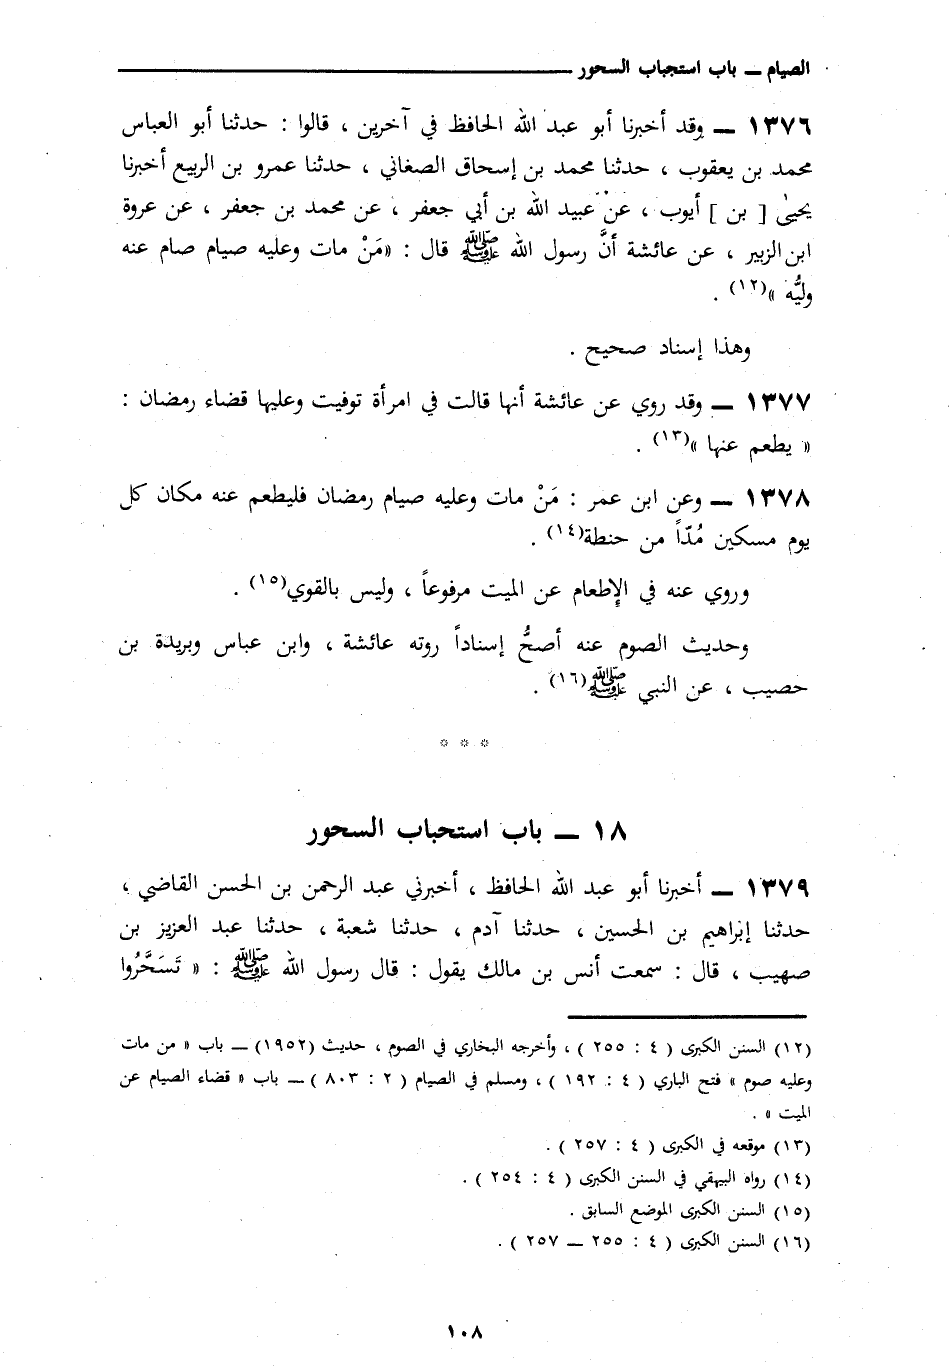 الصيام ــ باب استحباب السحور
١٣٧٦ ــ وقد أخبرنا أبو عبد الله الحافظ في آخرين ، قالوا : حدثنا أبو العباس
محمد بن يعقوب ، حدثنا محمد بن إسحاق الصغاني ، حدثنا عمرو بن الربيع أخبرنا
يحيىٰ [ بن ] أيوب ، عن عبيد الله بن أبي جعفر ، عن محمد بن جعفر ، عن عروة
ابن الزبير ، عن عائشة أنَّ رسول الله ﷺ قال : «مَنْ مات وعليه صيام صام عنه
وليُّه »(١٢) .
وهذا إسناد صحيح .
١٣٧٧ ــ وقد روي عن عائشة أنها قالت في امرأة توفيت وعليها قضاء رمضان :
« يطعم عنها »(١٣) .
١٣٧٨ ــ وعن ابن عمر : مَنْ مات وعليه صيام رمضان فليطعم عنه مكان كل
يوم مسكين مُدّاً من حنطة(١٤) .
وروي عنه في الإطعام عن الميت مرفوعاً ، وليس بالقوي(١٥) .
وحديث الصوم عنه أصحُّ إسناداً روته عائشة ، وابن عباس وبريدة بن
حصيب ، عن النبي ﷺ(١٦) .
* * *
١٨ ــ باب استحباب السحور
١٣٧٩ ــ أخبرنا أبو عبد الله الحافظ ، أخبرني عبد الرحمن بن الحسن القاضي ،
حدثنا إبراهيم بن الحسين ، حدثنا آدم ، حدثنا شعبة ، حدثنا عبد العزيز بن
صهيب ، قال : سمعت أنس بن مالك يقول : قال رسول الله ﷺ : « تَسَحَّرُوا
(١٢) السنن الكبرى ( ٤ : ٢٥٥ ) ، وأخرجه البخاري في الصوم ، حديث (١٩٥٢) ــ باب « من مات
وعليه صوم » فتح الباري ( ٤ : ١٩٢ ) ، ومسلم في الصيام ( ٢ : ٨٠٣ ) ــ باب « قضاء الصيام عن
الميت » .
(١٣) موقعه في الكبرى ( ٤ : ٢٥٧ ) .
(١٤) رواه البيهقي في السنن الكبرى ( ٤ : ٢٥٤ ) .
(١٥) السنن الكبرى الموضع السابق .
(١٦) السنن الكبرى ( ٤ : ٢٥٥ ــ ٢٥٧ ) .
١٠٨